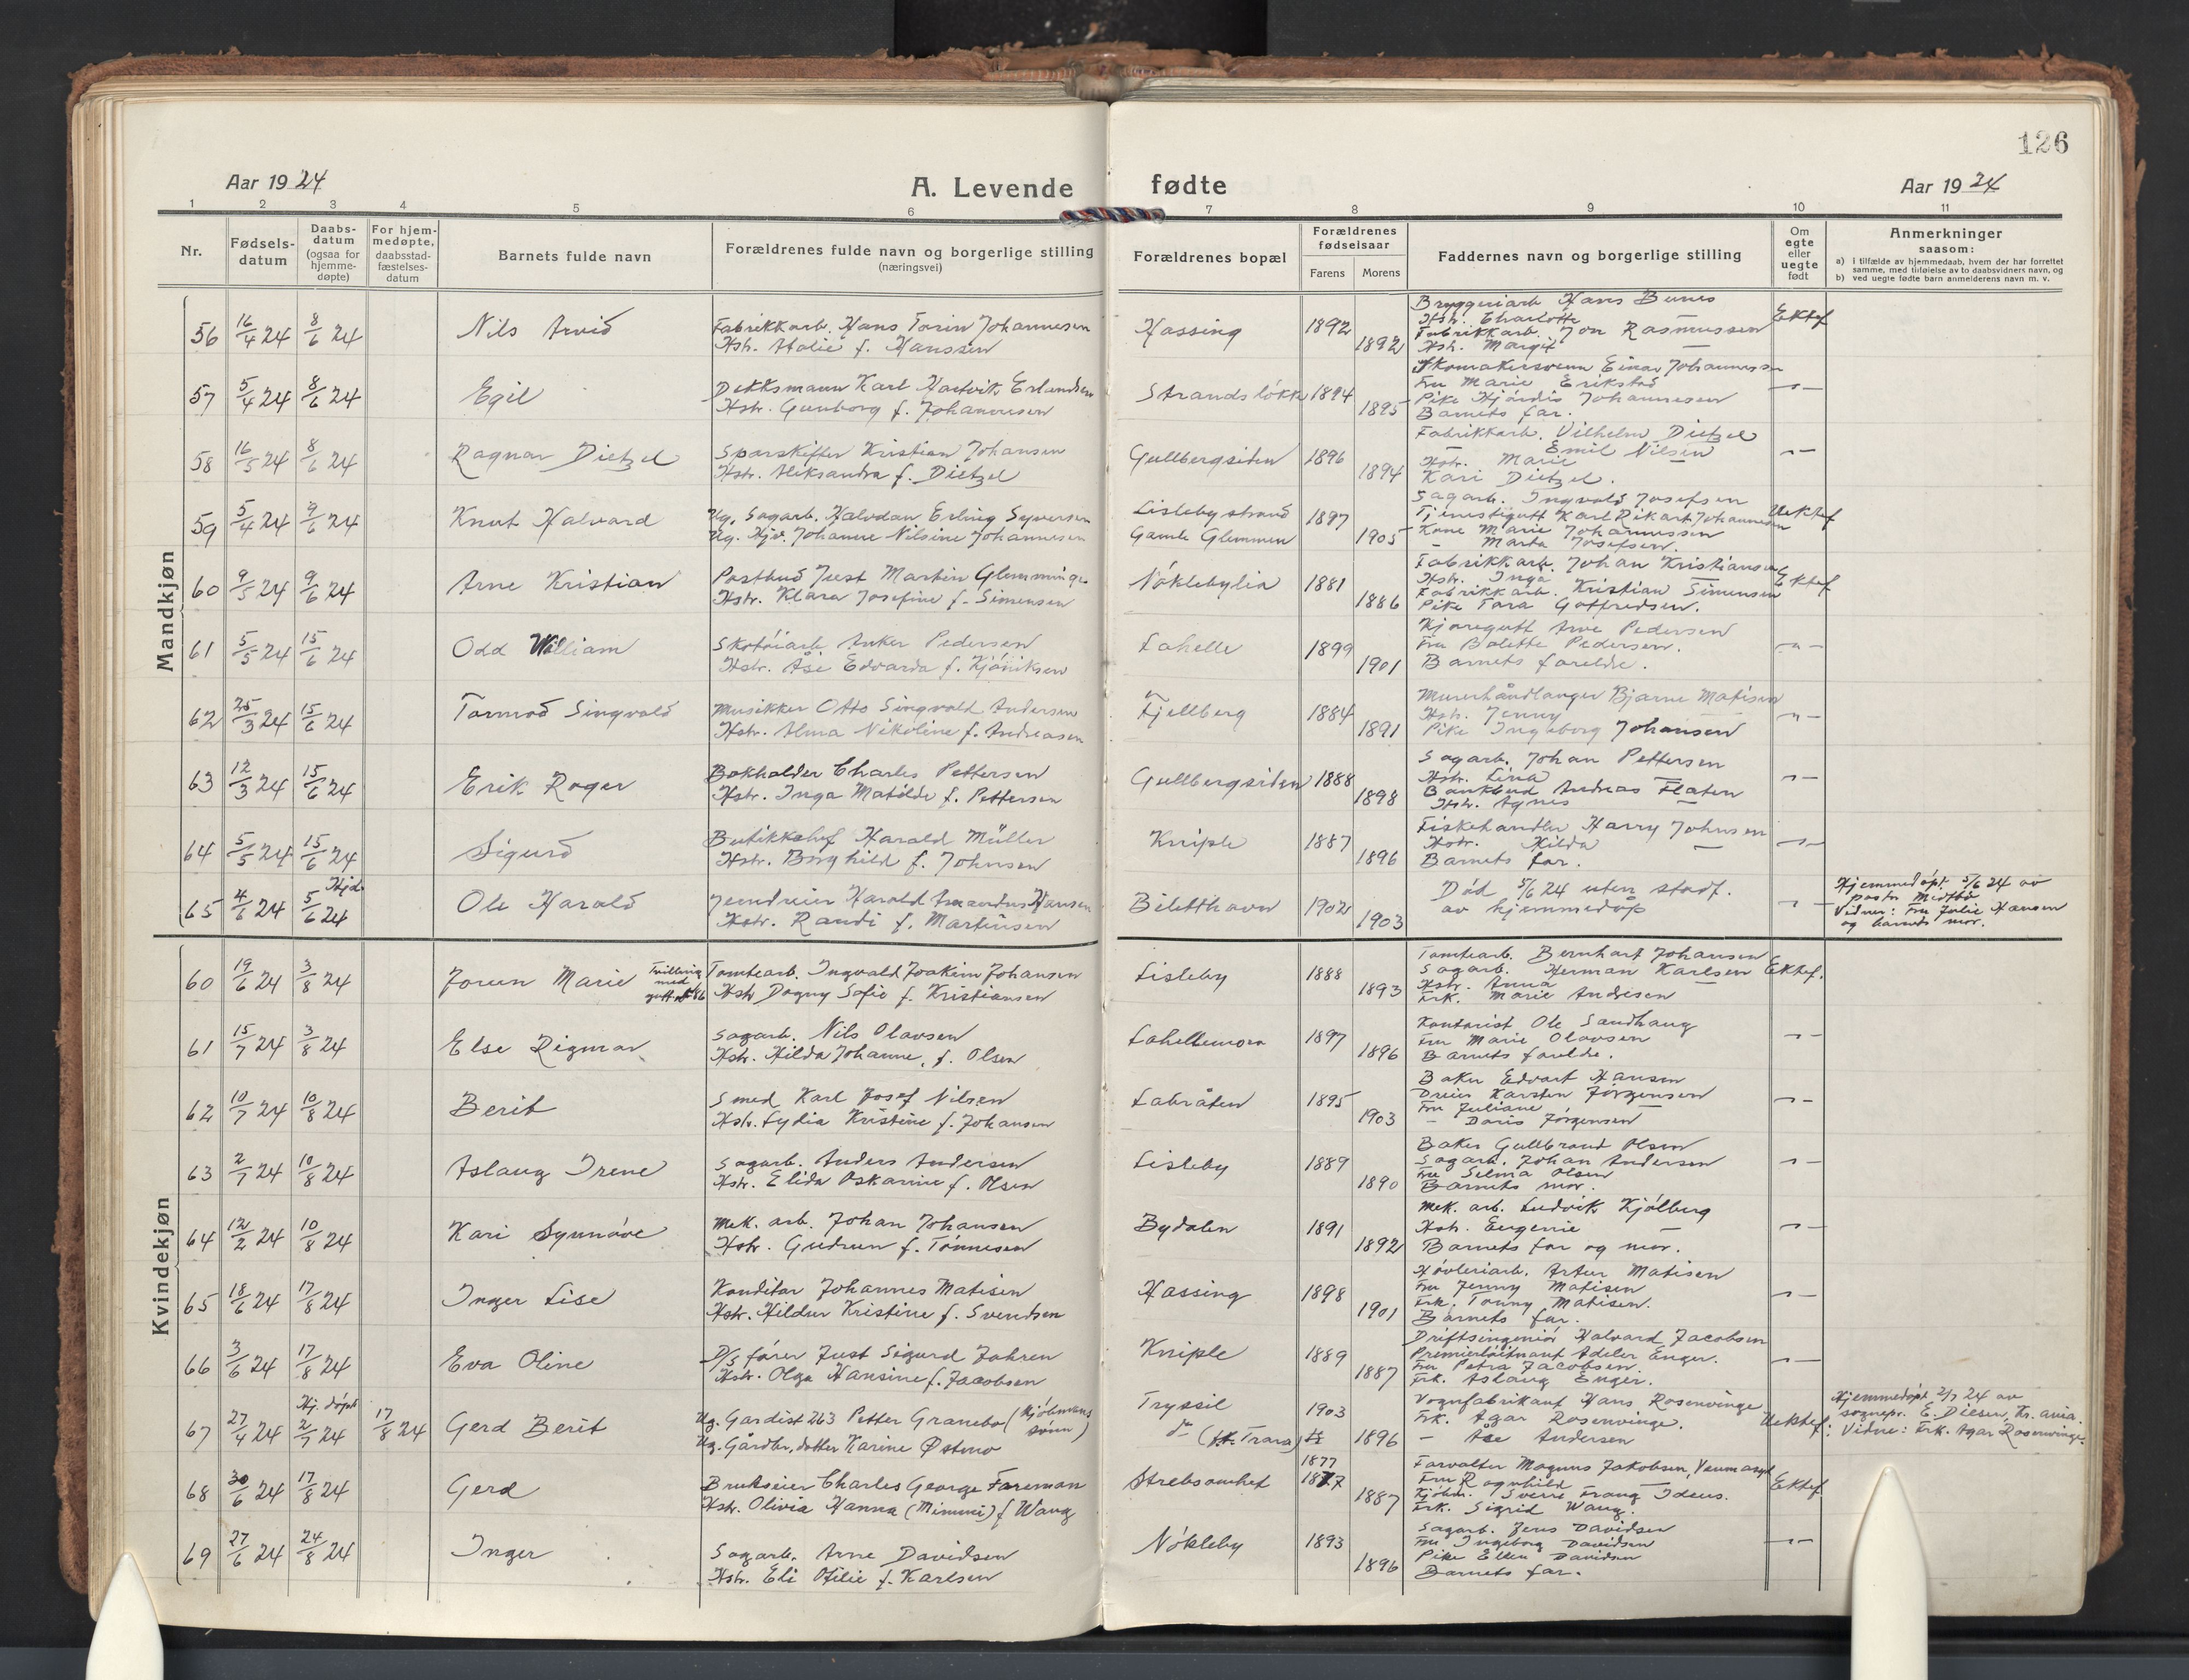 126
Aar 1924
A. Levende fødte
Aar 1924
1 2 3 4 5 6 7 8 9 10 11
Nr.
Fødsels-datum
Daabs-datum (ogsaa for hjemme-døpte)
For hjem-medøpte, daabsstad-fæstelses-datum
Barnets fulde navn
Forældrenes fulde navn og borgerlige stilling (næringsvei)
Forældrenes bopæl
Forældrenes fødselsaar
Farens Morens
Faddernes navn og borgerlige stilling
Om egte eller uegte født
Anmerkninger saasom:
a) i tilfælde av hjemmedaab, hvem der har forrettet samme, med tilføielse av to daabsvidners navn, og
b) ved uegte fødte barn anmelderens navn m. v.
Mandkjøn
56 16/4 24 8/6 24 Nils Arvid
Fabrikkarb. Hans Torin Johannesen
Hstr. Atalie f. Hanssen
Hassing 1892 1892
Bryggeriarb Hans Bunes
Hstr. Charlotte —
Fabrikkarb. Jon Rasmussen
Hstr. Margit —
Ektef
57 5/4 24 8/6 24 Egil
Dekksmann Karl Hartvik Erlandsen
Hstr. Gunborg f. Johannesen
Strandsløkk 1894 1895
Skomakersvenn Einar Johannessen
Fru Marie Erikstad
Pike Hjördis Johannesen
Barnets far.
— " —
58 16/5 24 8/6 24 Ragnar Dietzel
Sporskifter Kristian Johansen
Hstr. Aleksandra f. Dietzel
Gullbergsiden 1896 1894
Fabrikkarb. Vilhelm Dietzel
— Emil Nilsen
Hstr. Marie —
Kari Dietzel.
— " —
59 5/4 24 9/6 24 Knut Halvard
Ug. Sagarb. Halvdan Erling Syversen
Ug. Hjv. Johanne Nilsine Johannesen
Lisleby strand
Gamle Glemmen
1897 1905
Sagarb. Ingvald Josefsen
Tjenestegutt Karl Rikart Johannesen
Kone Marie Johannessen
— Marta Josefsen.
Uektef
60 9/5 24 9/6 24 Arne Kristian
Postbud Just Martin Glemminge
Hstr. Klara Josefine f. Simensen
Nøklebylia 1881 1886
Fabrikkarb. Johan Kristiansen
Hstr. Inga —
Fabrikkarb. Kristian Simensen
Pike Tora Gotfredsen.
Ektef
61 5/5 24 15/6 24 Odd William
Skotøiarb Anker Pedersen
Hstr. Åse Edvarda f. Kjöniksen
Lahelle 1899 1901
Kjøregutt Arve Pedersen
Fru Bolette Pedersen.
Barnets foreldre.
— " —
62 25/3 24 15/6 24 Tormod Singvald
Musikker Otto Singvald Andersen
Hstr. Alma Nikoline f. Andreasen
Fjellberg 1884 1891
Murerhåndlanger Bjarne Matisen
Hstr. Jenny —
Pike Ingeborg Johansen
— " —
63 12/3 24 15/6 24 Erik Roger
Bokholder Charles Pettersen
Hstr. Inga Matilde f. Pettersen
Gullbergsiden 1888 1898
Sagarb. Johan Pettersen
Hstr. Lina —
Bankbud Andreas Flaten
Hstr. Agnes —
— " —
64 5/5 24 15/6 24 Sigurd
Butikkchef Harald Müller
Hstr. Borghild f. Johnsen
Kniple 1887 1896
Fiskehandler Harry Johnsen
Hstr. Hilda —
Barnets far.
— " —
65 4/6 24 Hjd. 5/6 24 Ole Harald
Jerndreier Harald Amandus Hansen
Hstr. Randi f. Martinsen
Biletthavn 1902 1903
Død 5/6 24 uten stadf.
av hjemmedåp
— " —
Hjemmedøpt 5/6 24 av
pastor Medbø
Vidner: Fru Julie Hansen
og barnets mor.
Kvindekjøn
60 19/6 24 3/8 24 Jorun Marie Tvilling med gutt nr 86
Tomtearb. Ingvald Joakim Johansen
Hstr Dagny Sofie f. Kristiansen
Lisleby 1888 1893
Tomtearb. Bernhart Johansen
Sagarb. Herman Karlsen
Hstr. Anna —
Frk. Marie Andresen
Ektef.
61 15/7 24 3/8 24 Else Rigmor
Sagarb. Nils Olavsen
Hstr. Hilda Johanne, f. Olsen
Lahellemoen 1897 1896
Kontorist Ole Sandhaug
Fru Marie Olavsen
Barnets foreldre.
— " —
62 10/7 24 10/8 24 Berit
Smed Karl Josef Nilsen
Hstr. Lydia Kristine f. Johansen
Labråten 1895 1903
Baker Edvart Hansen
Dreier Karsten Jørgensen
Fru Juliane —
— Doris Jørgensen
— " —
63 2/7 24 10/8 24 Aslaug Irene
Sagarb. Anders Andersen
Hstr. Elida Oskarine f. Olsen
Lisleby 1889 1890
Baker Gullbrand Olsen
Sagarb. Johan Andersen
Fru Selma Olsen
Barnets mor.
— " —
64 12/2 24 10/8 24 Kari Synnöve
Mek. arb. Johan Johansen
Hstr. Gudrun f. Tønnesen
Bydalen 1891 1892
Mek. arb. Ludvik Kjølberg
Hstr. Eugenie —
Barnets far og mor.
— " —
65 18/6 24 17/8 24 Inger Lise
Konditor Johannes Matisen
Hstr. Hildur Kristine f. Svendsen
Hassing 1898 1901
Høvleriarb. Artur Matisen
Fru Jenny Matisen
Frk. Tonny Matisen.
Barnets far.
— " —
66 3/6 24 17/8 24 Eva Oline
D/S fører Just Sigurd Johren
Hstr. Olga Hansine f. Jacobsen
Kniple 1889 1887
Driftsingeniör Halvard Jacobsen
Premierløitnant Adeler Enger.
Fru Petra Jacobsen.
Frk. Aslaug Enger.
— " —
67 27/4 24 Hj. døpt 2/7 24 17/8 24 Gerd Berit
Ug. Gardist 263 Petter Granebo (Kjøbmanns sønn)
Ug. Gårdbr. datter Karine Østmo
Tryssil
do (Trara)
1903 1896
Vognfabrikant Hans Rosenvinge
Frk. Agar Rosenvinge.
— Åse Andersen
Uektef.
Hjemmedøpt 2/7 24 av
sognepr. E. Diesen, Kr.ania.
Vidne: Frk. Agar Rosenvinge.
68 30/6 24 17/8 24 Gerd
Brukseier Charles George Foreman
Hstr. Olivia Hanna (Mimmi) f Wang
Strebsomhet 1877 1877 1887
Forvalter Magnus Jakobsen,
Fru Ragnhild —
Kjøbm. Sverre Frang Ideus.
Frk. Sigrid Wang.
Ektef.
69 27/6 24 24/8 24 Inger
Sagarb. Arne Davidsen
Hstr. Eli Otilie f. Karlsen
Nøkleby 1893 1896
Sagarb. Jens Davidsen
Fru Ingeborg Davidsen
Pike Ellen Davidsen
Barnets far.
— " —